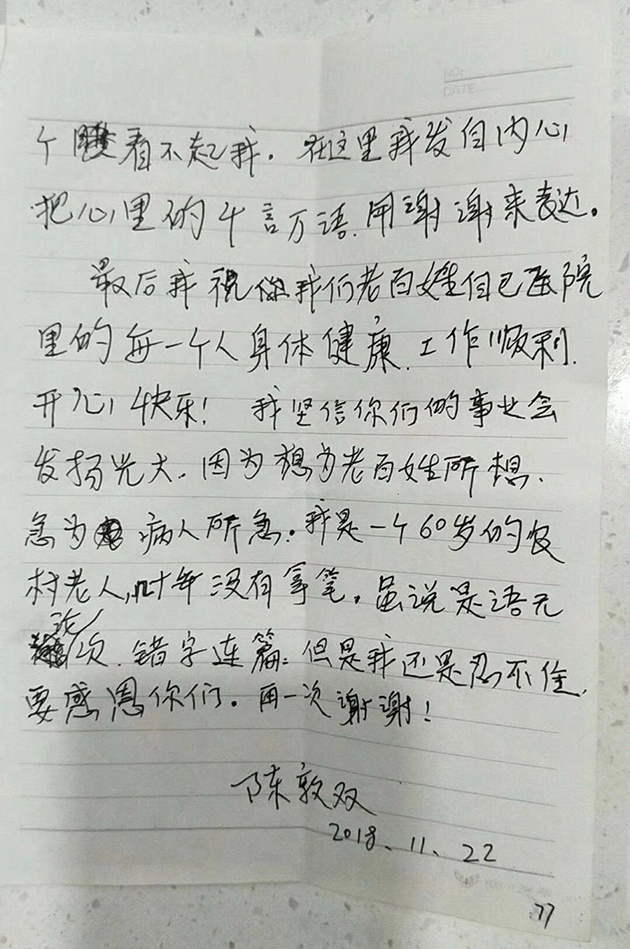 NO:
DATE:
个 看不起我。在这里我发自内心
把心里的千言万语.用谢谢来表达。
最后我祝你我们老百姓自已医院
里的每一个人身体健康.工作顺利.
开心快乐! 我坚信你们的事业会
发扬光大.因为想为老百姓所想.
急为病人所急.我是一个60岁的农
村老人,几十年没有拿笔.虽说是语无
论次.错字连篇.但是我还是忍不住.
要感恩你们.再一次谢谢!
陈敦双
2018.11.22
77